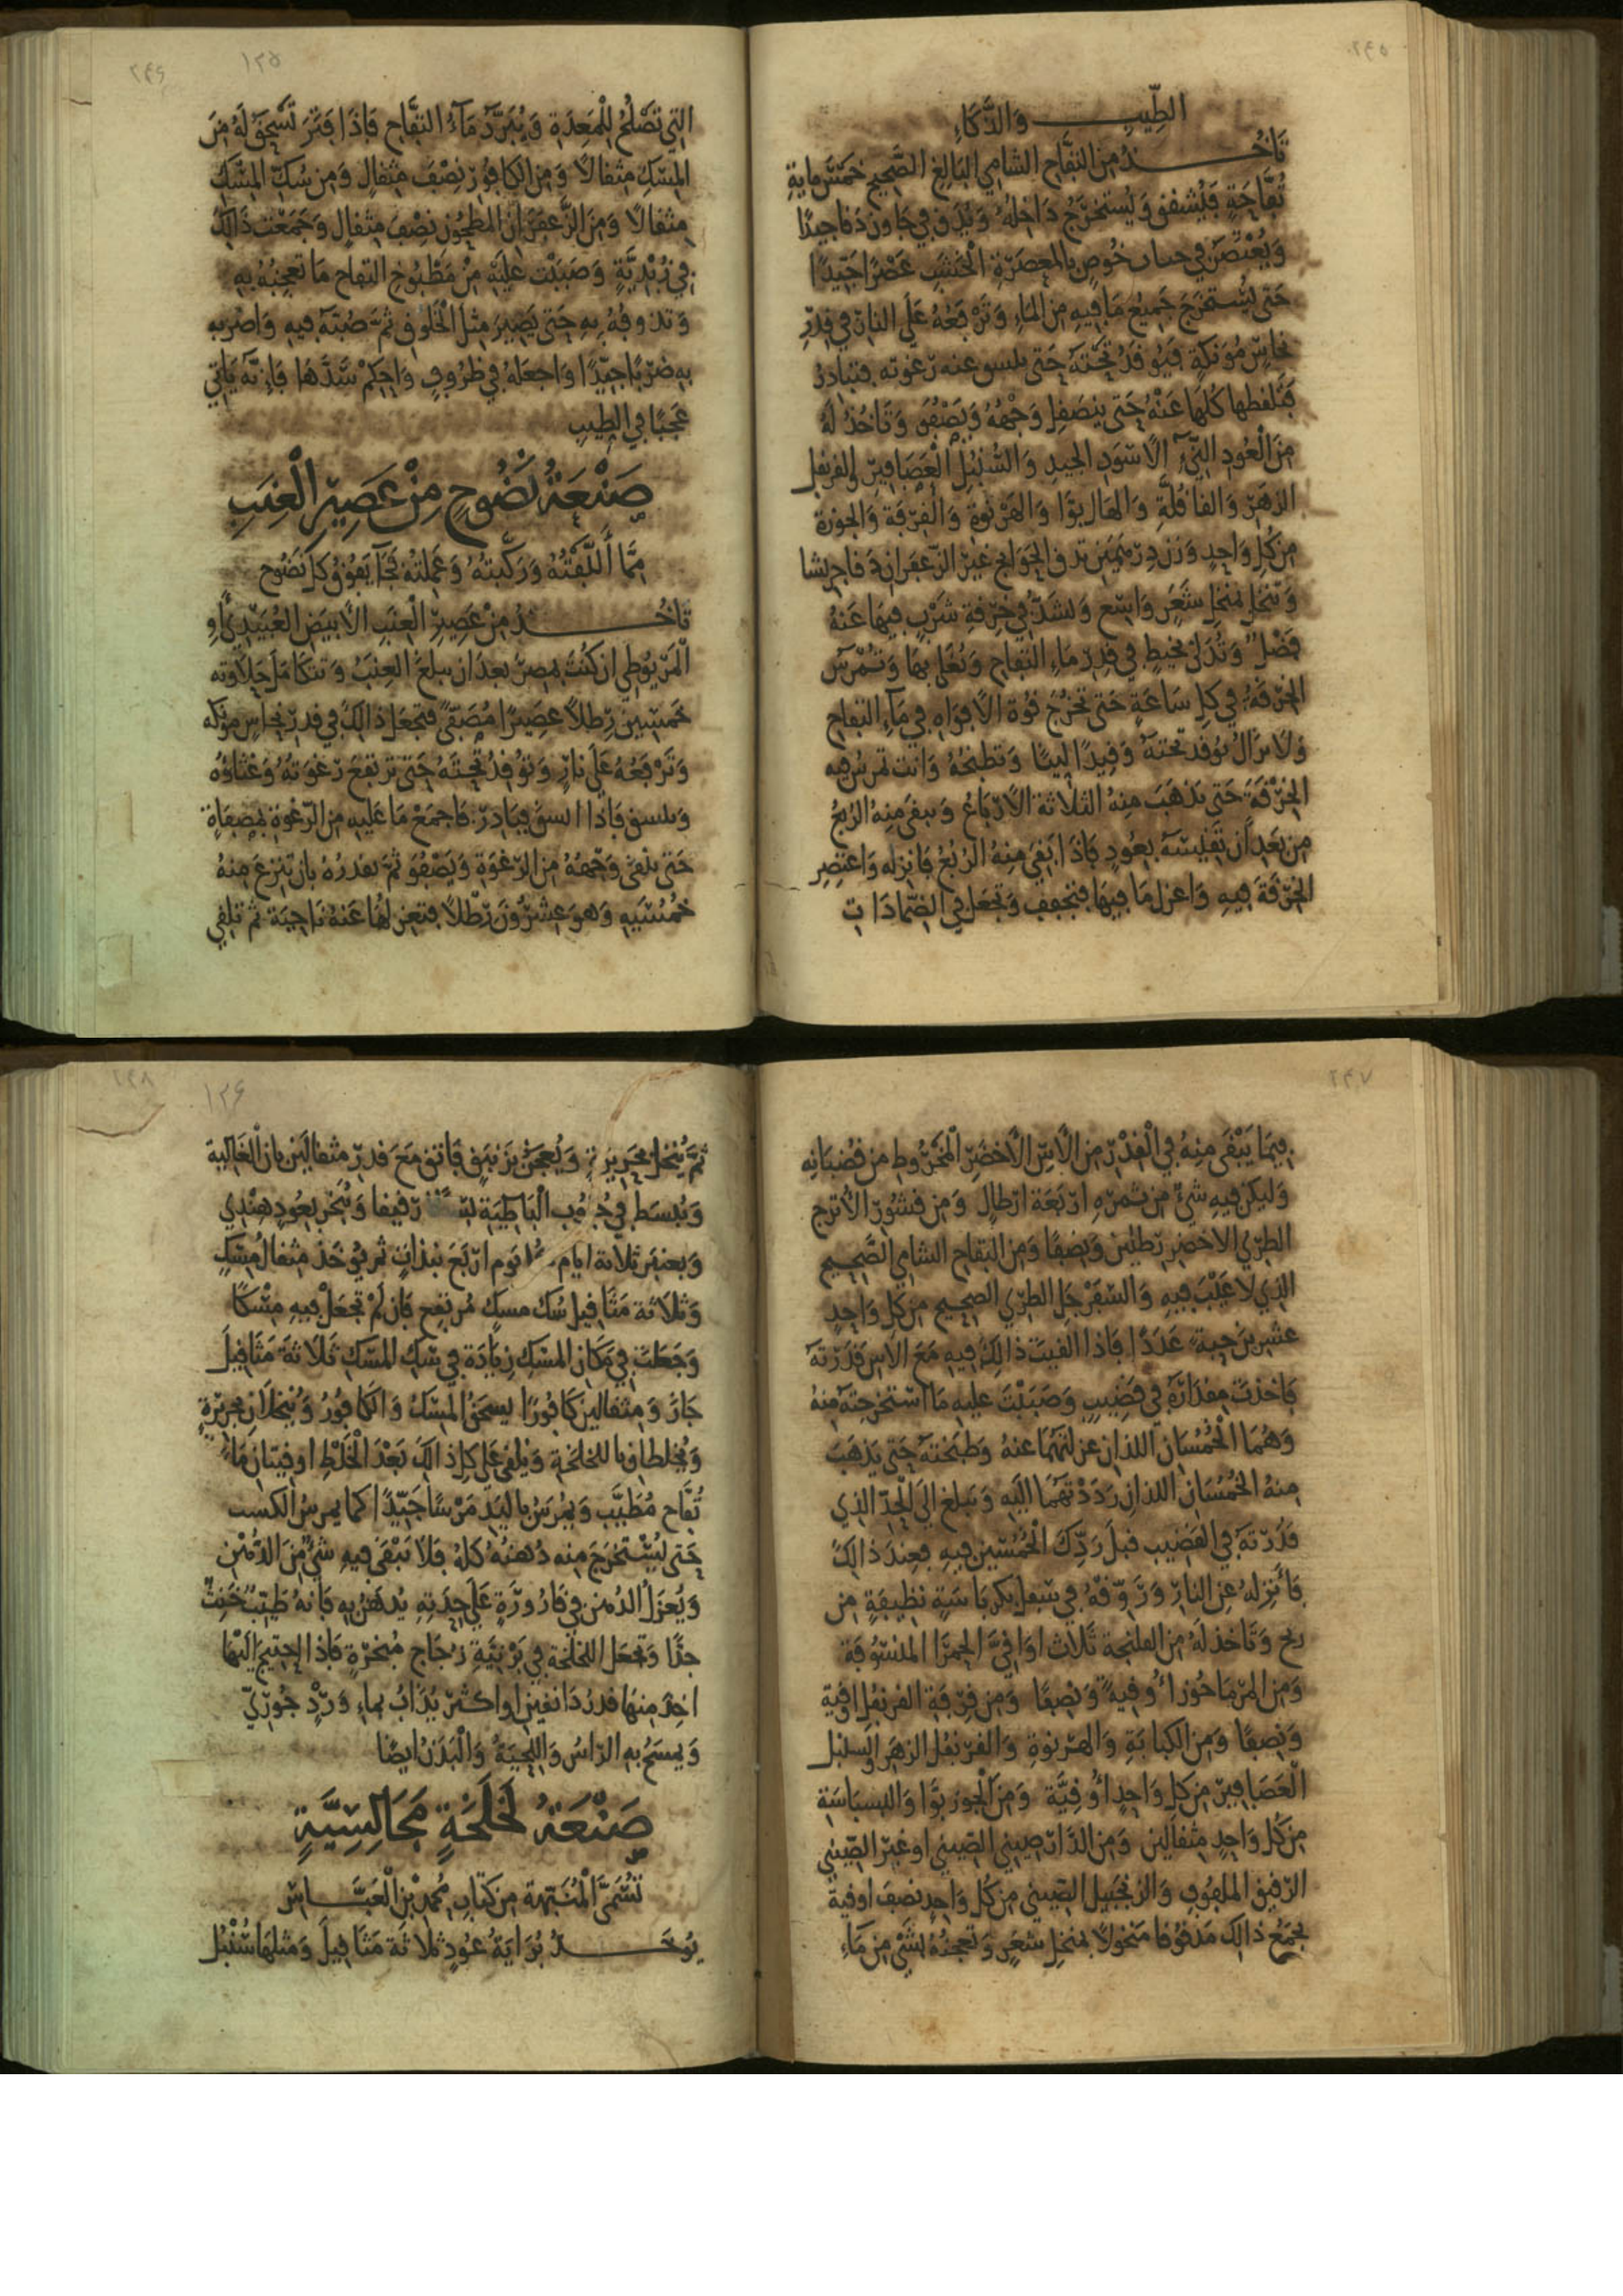 ٢٤٥
الطِّيبِ وَالذَّكَاءِ
تَاخُذُ مِنَ التُّفَّاحِ الشامِي البَالِغِ الصَّحِيحِ خمسَ مايةِ
تُفَّاحَةٍ فَيُشقق وَيُستَخرَجُ دَاخِلُهُ وَيُدَق في هَاون دَقا جيدًا
وَيُعْتَصَرُ في خُوصٍ بالمِعصَرَةِ الخَشَبِ عَصْرًا جَيِّدًا
حَتى يُستَخرَجَ جَمِيعُ مَا فِيهِ مِنَ المَاءِ وَتَرْفَعُهُ عَلَى النارِ في قِدْرِ
نحاسٍ مُؤنَكةٍ فَيُوقدُ تَحتَهُ حَتى عنه رَغوته فتبادرُ
فتَلقطها كلهَا عَنْهُ حَتى يَنصَقِل وَجْهُهُ وَيَصْفُوَ وَتَاخُذُ لَهُ
مِنَ الْعُودِ النَّيِّ الاسْوَدِ الجَيدِ وَالسُّنْبُلِ الْعَصَافِيرِ وَالقرَنفل
الزهَرِ وَالقاقُلَّةِ وَالهَال بَوَّا وَالهَرْنوَةِ وَالْقِرْفَة وَالجَوزَةِ
مِن كلِّ وَاحِدٍ وَزنَ دِرْهَمَين تدق الحَوَايج غيْرَ الزعفَرَان دَقا جريشا
وَيُنخَل بمنخل شَعَرٍ وَاسِع وَيشَدُّ في خِرْقةِ شَرْبٍ فيهَا عَنهُ
فَضْلٌ وَتُدَلَّى بخيطٍ في قِدر مَاءِ التفاحِ وَيُغلَى بهَا وَتُمْرَسُ
الخِرْقَةُ في كلِّ سَاعَةٍ حَتى تخرُجَ قوَّة الافوَاهِ في مَآءِ التفاح
وَلا يزَالُ يُوقد تحتَهُ وَقِيدًا ليِّنًا وَتَطبُخُهُ وَانت تمرسُ فيهِ
الخِرْقَة حَتى يَذهَبَ مِنهُ الثلاثة الارْبَاعُ وَيبقى مِنهُ الرُّبعُ
مِن بَعدِ أن تَقيسَهُ بعُودٍ فَاذَا بَقىَ مِنهُ الرُّبُعُ فَانزله وَاعتَصِر
الخِرْقَةَ فِيهِ وَاعزل مَا فِيهَا فتجَفف وَتجعَل في الضِّمَادَاتِ
٢٤٦
١٢٥
التِي تَصْلُحُ لِلْمَعِدَةِ وَيُبَرَّدُ مَاءُ التفَّاحِ فَاذَا فَتَرَ تَسْحَقُ لَهُ مِنَ
المِسْكِ مثقالاً وَمِنَ الكافُورِ نِصْفَ مِثقالٍ وَمِن سُكِّ المِسْكِ
مِثقالاً وَمِنَ الزَّعفَرَانِ المطحُونِ نِصْفَ مِثقالٍ وَجَمَعْت ذَالِكَ
في زُبْدِيَّةٍ وَصَبَبْت عَليْهِ مِنْ مَطْبُوخ التفاح مَا تعجِنُهُ بِهِ
وَتدُوفُهُ بِهِ حَتى يَصِيرَ مِثلَ الْخَلُوقِ ثمَّ صُبَّهُ فيهِ وَاضرِبه
بِهِ ضَرْبًا جَيِّدًا وَاجعَلهُ في ظُروفٍ وَاحْكِمْ سَدَّهَا فَإِنَّهُ يَاتي
عَجَبًا في الطِّيبِ
صَنْعَةُ نَضُوحٍ مِنْ عَصِيرِ الْعِنَبِ
مِمَّا أَلَّفْتُهُ وَرَكَّبتهُ وَعَمِلتُهُ فَجَآ يَفُوقُ كل نَضُوح
تَاخُذُ مِنْ عَصِيرِ الْعِنَب الأبيَض العُبَيْدِيِّ أَوِ
الْمَرْيُوطِي ان كنتَ بمِصرَ بعدَ ان يبلغَ العِنَبُ وَتتكامَل حَلاوته
خَمسينَ رِطلاً عَصِيرًا مُصَفًّى فتجعَل ذالِكَ في قدرِ نحاسٍ مؤنكه
وَتَرْفَعُهُ عَلَى نارٍ وَتُوقدُ تحتَهُ حَتى ترتفعَ رَغوَتهُ وَغثاؤه
فَاذَا فبَادِرْ فَاجمَعْ مَا عَليهِ مِنَ الرَّغوَةِ بمِصفَاةٍ
حَتى ينقى وَجْهُهُ مِنَ الرَّغوَةِ وَيَصْفُوَ ثمَّ تقدرُهُ بان تنزعَ مِنهُ
خُمسَيهِ وَهوَ عِشْرُونَ رِطلاً فتعزلهَا عَنهُ نَاحِيَة ثم تلقِي
٢٤٧
فِيمَا يَبْقَى مِنهُ في الْقِدْرِ مِنَ الآسِ الأخضَرِ المَخْرُوطِ مِن قضْبَانِه
وَليكن فِيهِ شَئٌ مِن ثمَرِهِ ارْبَعَة ارْطالٍ وَمِن قشُور الأترج
الطَرِّي الاخضر رَطلَين وَنِصفًا وَمِنَ التفاحِ الشامِي الصَّحِيح
الذِي لا عَيْبَ فِيهِ وَالسَّفَرْجَلِ الطَرِّي الصَّحِيح مِن كلِّ وَاحِدٍ
عشرينَ حَبةً عَدَدًا فَاذا القيتَ ذالِكَ فيهِ مَعَ الاس قَدَرْتَهُ
فَاخَذتَ مِقدَارَهُ في قَضِيبٍ وَصَبَبْتَ عليهِ مَا استخرَجته مِنهُ
وَهُمَا الْخُمُسَانِ اللذانِ عزلتَهُمَا عنهُ وَطبَختهُ حَتى يَذهَبَ
مِنهُ الخُمُسَانِ اللذانِ رَدَدْتَهمَا اليْهِ وَيَبلغ الى الْحَدِّ الذِي
قدَرْتَهُ في القَضِيب قبلَ رَدِّكَ الْخُمُسَين فِيهِ فعِندَ ذالِكَ
فَأَنزِلهُ عنِ النارِ وَرَوِّقْهُ في بكرباسَةٍ نظِيفَةٍ مِن
وَتَاخذ لَهُ مِنَ الفلنجَة ثَلاثَ اوَاقيَّ الحَمرَا
وَمِنَ المَرْمَاحُوز أوقِيةً وَنِصفًا وَمِن قِرفَةِ القَرَنفُلِ اوقية
وَنِصفًا وَمِنَ الكبَابَةِ وَالهرنوَةِ وَالقَرَنفُل الزهَر وَالسنبل
الْعَصَافِيرِ مِن كلِّ وَاحِدٍ أُوقِيَّة وَمِنَ الْجَوزبَوَّا وَالبسبَاسَة
مِن كُلِّ وَاحِدٍ مثقالَين وَمِنَ الدَّارْصِيني الصِّيني او غيْرِ الصِّيني
الرَّقيق الملفُوفِ وَالزنجَبيل الصِّيني مِن كُلِّ وَاحِدٍ نِصفَ اوقية
يجمَعُ ذالِكَ مَدقُوقا مَنخُولاً بمنخلِ شعَرٍ وَتعجنُهُ بشَئٍ مِن مَاءِ
٢٤٨
١٢٦
ثمَّ يُنخَل بحَرِيرَةٍ وَيُعجَنُ بزَنبَقٍ فَائقٍ مَعَ قدْرِ مثقالَين بانِ الْغَالِيَة
وَيُبسَط في البَاطِيَةِ رَقيقا وَيُبَخر بعُودٍ هِندِي
وَبعنبَر ثلاثة ايام يَوم ارْبَعَ ثم يُؤخَذ مثقال مِسْكٍ
وَثلاثَة مَثَاقيلَ سُك مسكٍ مُرتفِع فَإن لَمْ تجعَل فِيهِ مِسْكًا
وَجَعَلتَ في مَكانِ المِسْكِ زِيَادَة في سُكِّ المِسْكِ ثَلاثةَ مَثَاقيلَ
جَازَ وَمِثقالينِ كَافُورًا يسحَقُ المِسْكُ وَالكافورُ وَيُنخلانِ بحَرِيرَةٍ
وَيُخلطانِ باللخلخَةِ وَيُلقى عَلَى كلِّ ذالِكَ بَعْدَ الْخَلطِ اوقيتانِ مَاءَ
تُفَّاحٍ مُطَيَّب وَيُمرَسُ باليَدِ مَرْسًا جَيِّدًا كما يُمرسُ الكسب
حَتى يُسْتَخرَجَ مِنه دُهنُهُ كلُّهُ فَلا يَبْقَى فِيهِ شَئٌ مِنَ الدُّهْنِ
وَيُعزَلُ الدُّهن في قارُورَةٍ عَلَى حِدَتِهِ يُدهَنُ بِهِ فَانهُ طَيِّبٌ خَنِثٌ
جدًّا وَتجعَل اللخلخَة في بَرْنيَّةِ زُجَاجٍ مُبَخرَةٍ فَاذا احتِيجَ اليْهَا
اخِذَ مِنهَا قدرُ دَانقَين اوِ اكثَر يُذَابُ بماءِ وَرْدٍ جُورِيٍّ
وَيمسَحُ بهِ الرّاسُ وَاللحيَةُ وَالْبَدَنُ ايضًا
صَنْعَةُ لَخْلَخَةٍ مَجَالِسِيَّةٍ
تُسَمَّى الْمُنَبِّهة مِن كتَابِ مُحمدِ بْنِ الْعَبَّاسِ
يُؤخَذُ بُرَايَةُ عُودٍ ثلاثة مَثَاقِيلَ وَمثلهَا سُنْبُل